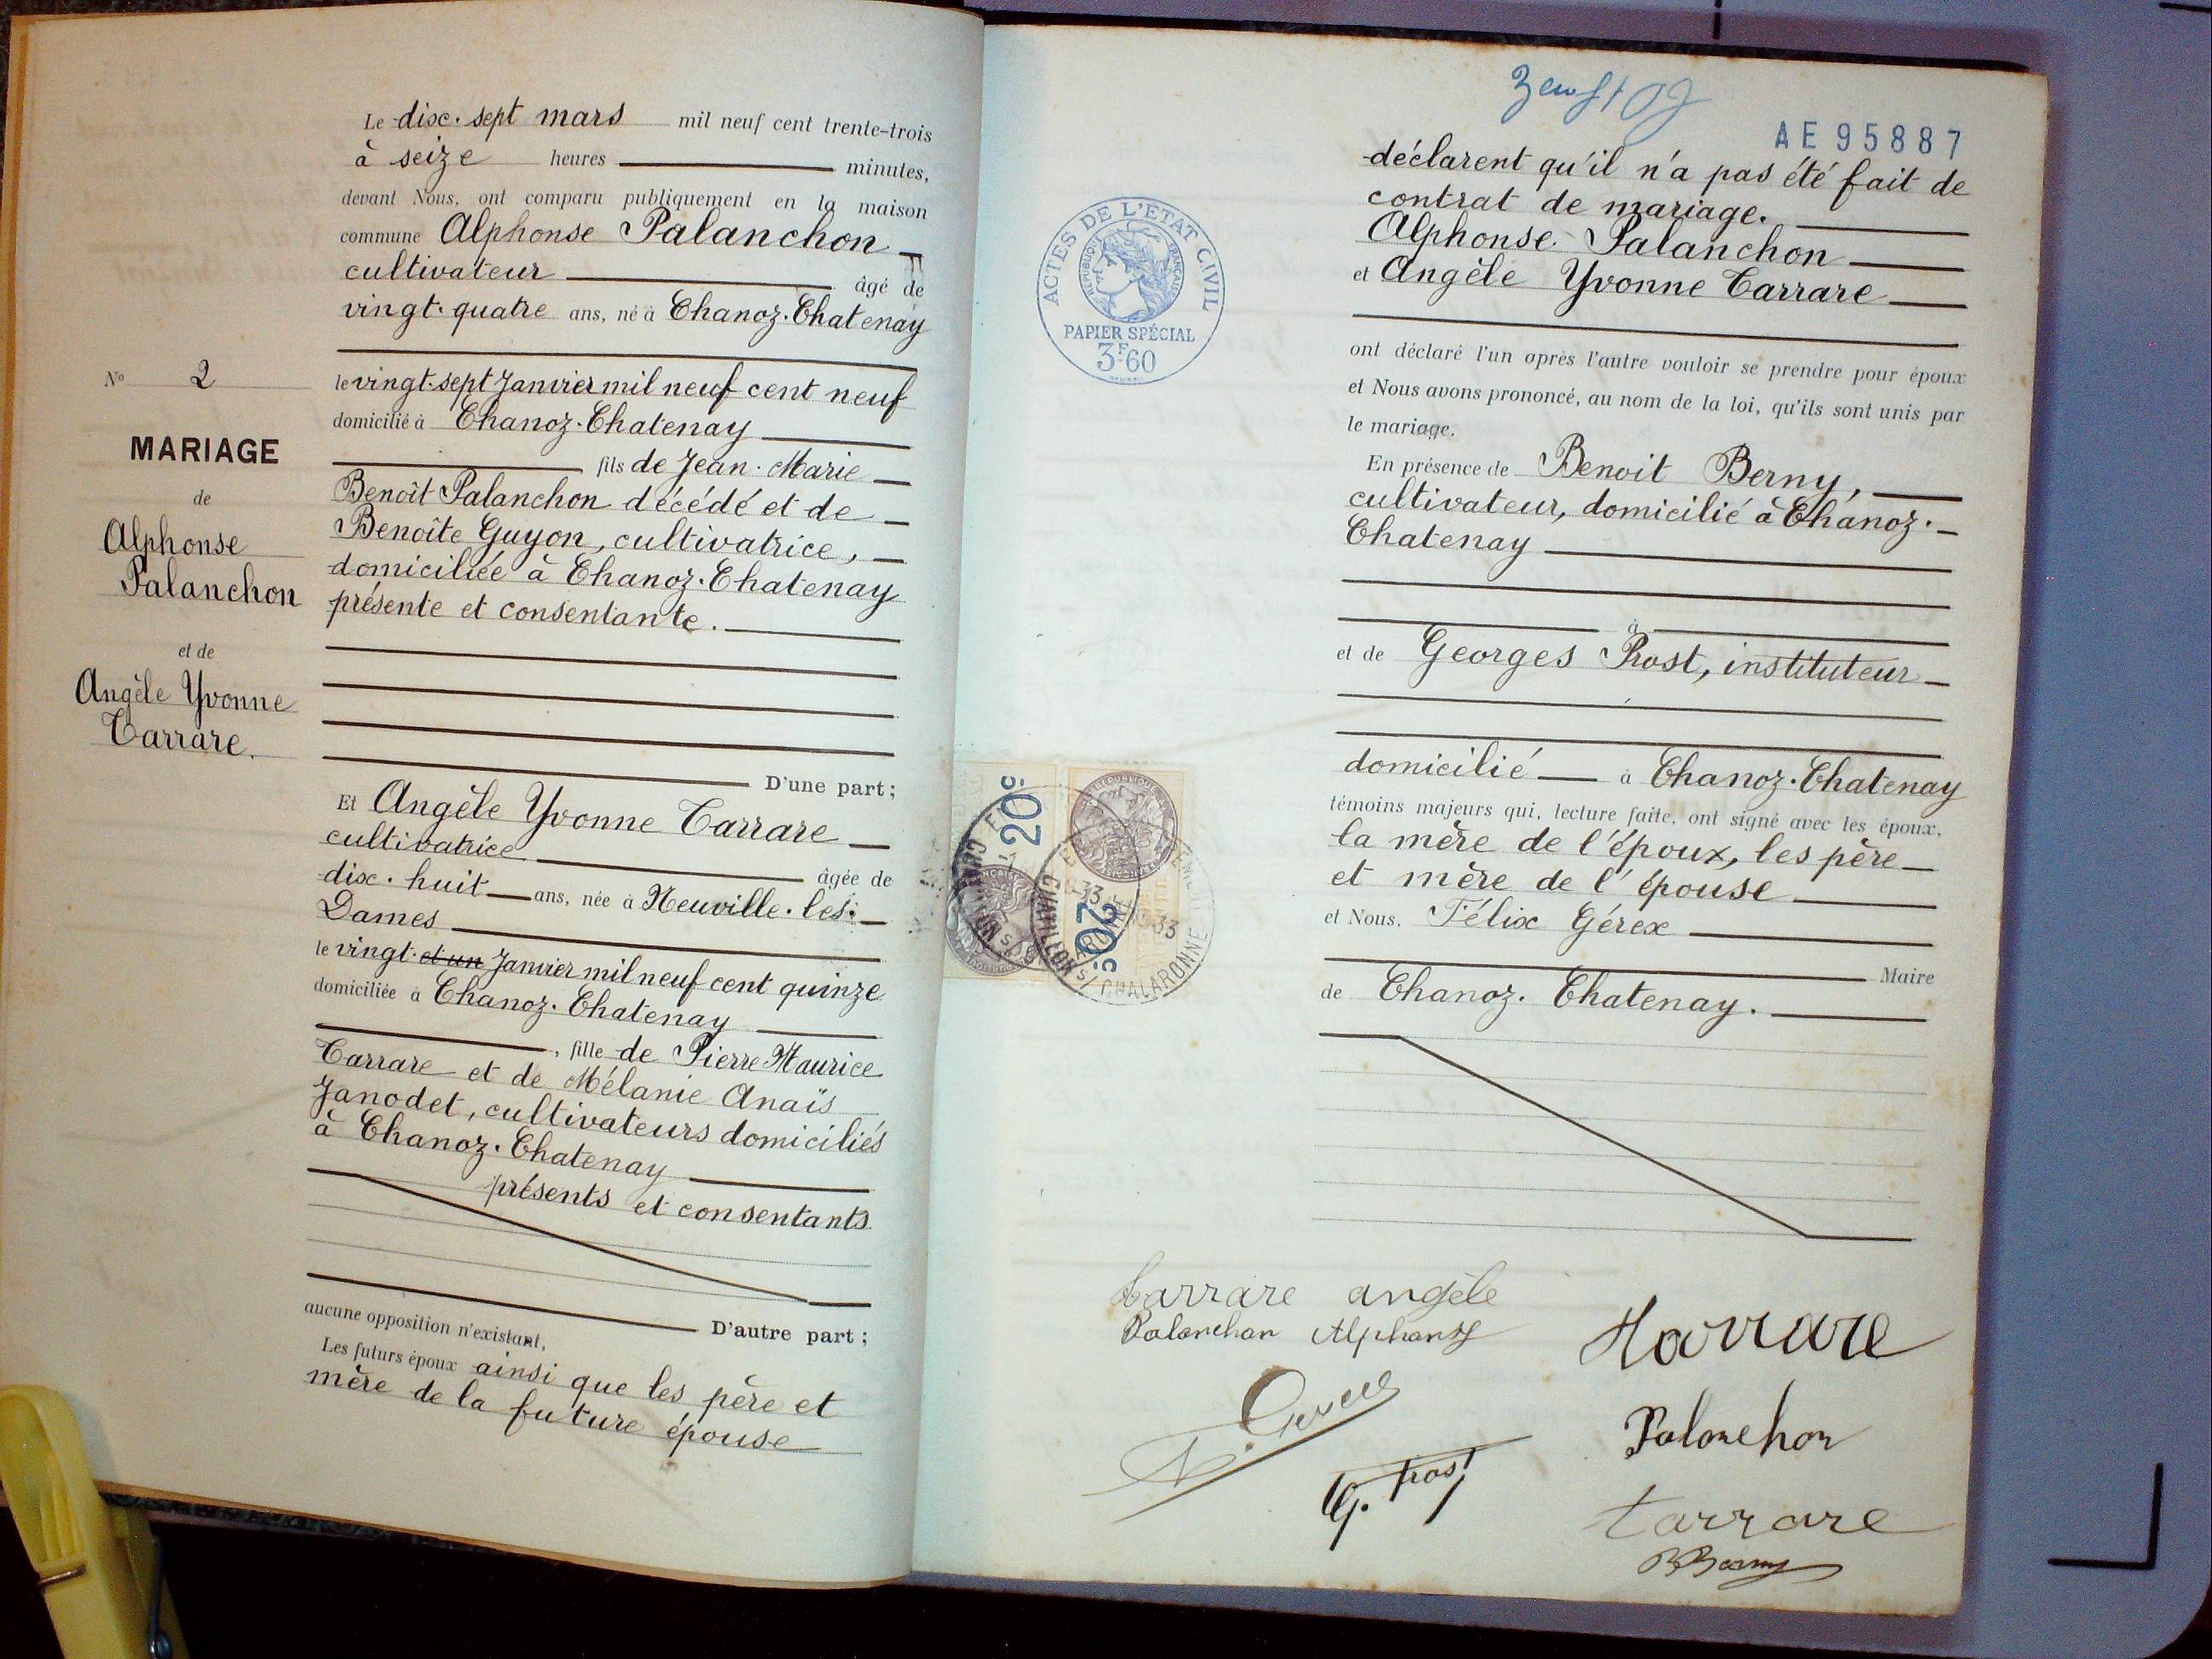 Le dix-sept mars mil neuf cent trente-trois
à seize heures minutes,
devant Nous, ont comparu publiquement en la maison
commune Alphonse Palanchon
cultivateur âgé de
vingt-quatre ans, né à Chanoz-Chatenay
le vingt-sept Janvier mil neuf cent neuf
domicilié à Chanoz-Chatenay
fils de Jean-Marie
Benoît Palanchon décédé et de
Benoîte Guyon, cultivatrice,
domiciliée à Chanoz-Chatenay
présente et consentante.
D'une part;
No 2
MARIAGE
de
Alphonse
Palanchon
et de
Angèle Yvonne
Carrare.
Et Angèle Yvonne Carrare
cultivatrice âgée de
dix-huit ans, née à Neuville-les-
Dames
le vingt-et un Janvier mil neuf cent quinze
domiciliée à Chanoz-Chatenay
, fille de Pierre Maurice
Carrare et de Mélanie Anaïs
Janodet, cultivateurs domiciliés
à Chanoz-Chatenay
présents et consentants
D'autre part;
aucune opposition n'existant,
Les futurs époux ainsi que les père et
mère de la future épouse
AE 95887
déclarent qu'il n'a pas été fait de
contrat de mariage.
Alphonse Palanchon
et Angèle Yvonne Carrare
ont déclaré l'un après l'autre vouloir se prendre pour époux
et Nous avons prononcé, au nom de la loi, qu'ils sont unis par
le mariage.
En présence de Benoit Berny,
cultivateur, domicilié à Chanoz-
Chatenay
à
et de Georges Prost, instituteur
domicilié à Chanoz-Chatenay
témoins majeurs qui, lecture faite, ont signé avec les époux,
la mère de l'époux, les père
et mère de l'épouse
et Nous, Félix Gérex
Maire
de Chanoz-Chatenay.
ACTES DE L'ETAT CIVIL
REPUBLIQUE FRANÇAISE
PAPIER SPÉCIAL
3F60
20c
20c
CHATILLON S/ CHALARONNE
Carrare angèle
Palanchon Alphonse
Palanchon
G. Prost
Carrare
B Berny